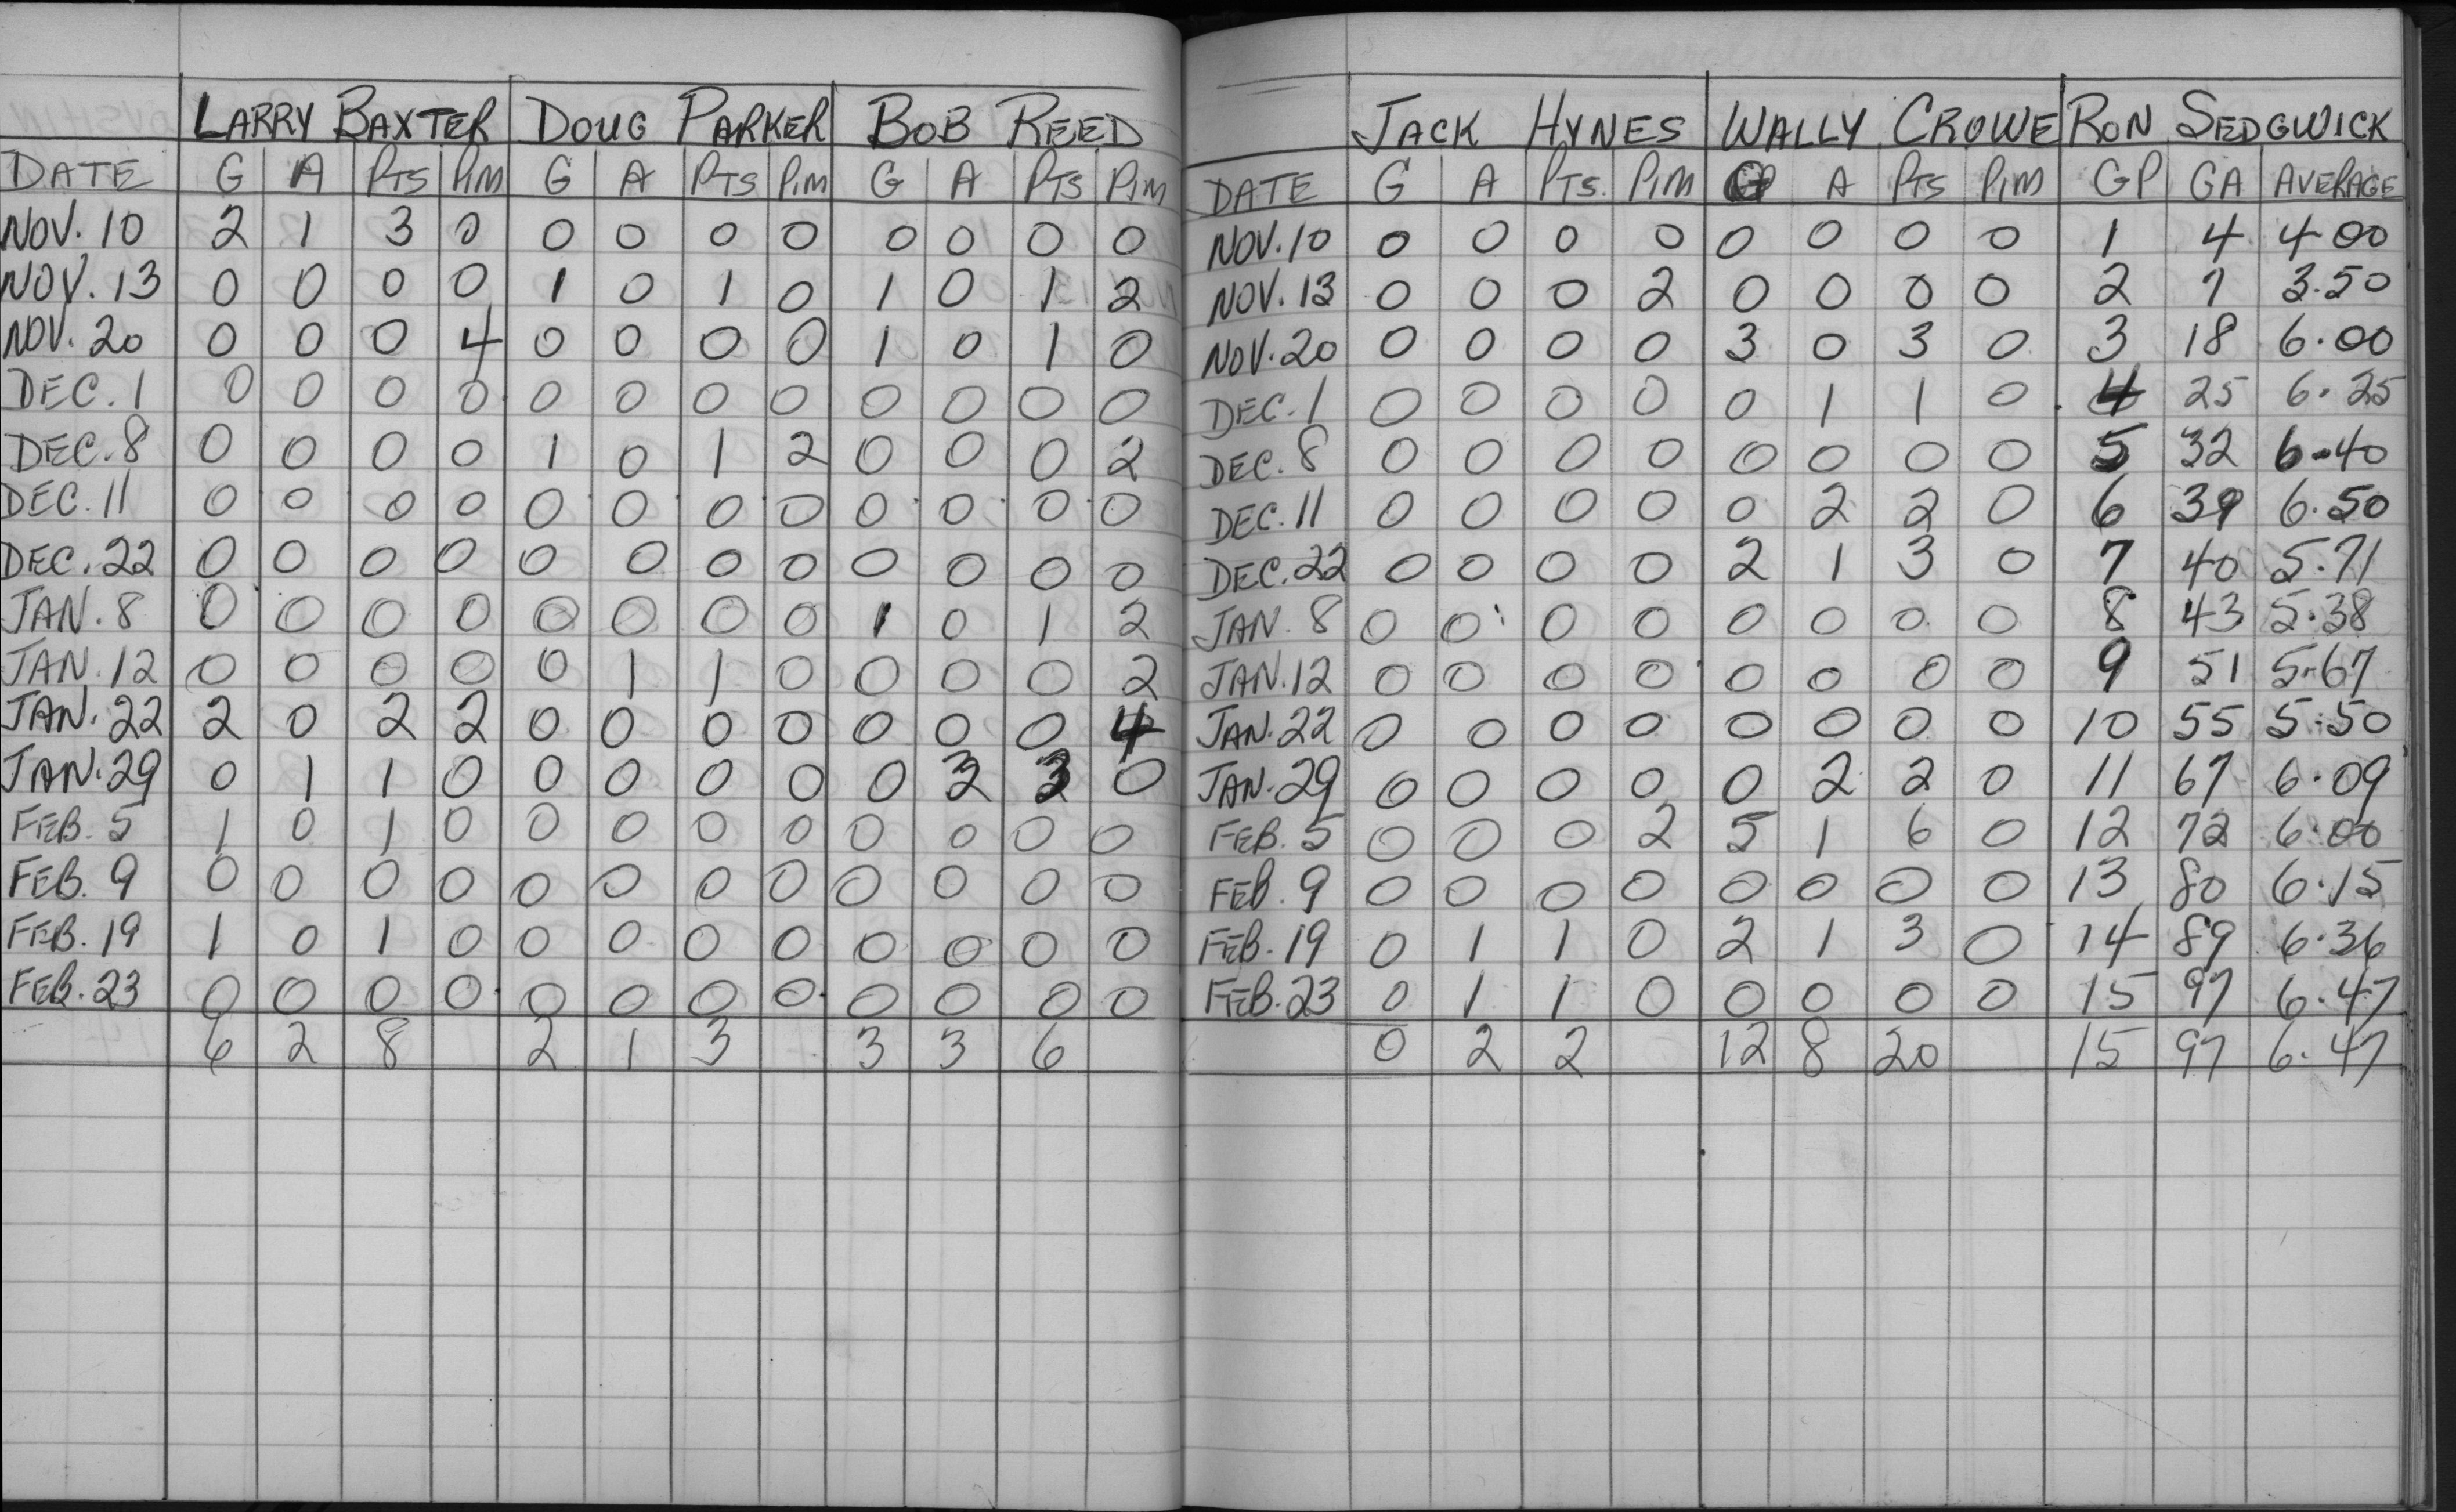 LARRY BAXTER DOUG PARKER BOB REED
DATE G A PTS PIM G A PTS PIM G A PTS PIM
NOV. 10 2 1 3 0 0 0 0 0 0 0 0 0
NOV. 13 0 0 0 0 1 0 1 0 1 0 1 2
NOV. 20 0 0 0 4 0 0 0 0 1 0 1 0
DEC. 1 0 0 0 0 0 0 0 0 0 0 0 0
DEC. 8 0 0 0 0 1 0 1 2 0 0 0 2
DEC. 11 0 0 0 0 0 0 0 0 0 0 0 0
DEC. 22 0 0 0 0 0 0 0 0 0 0 0 0
JAN. 8 0 0 0 0 0 0 0 0 1 0 1 2
JAN. 12 0 0 0 0 0 1 1 0 0 0 0 2
JAN. 22 2 0 2 2 0 0 0 0 0 0 0 4
JAN. 29 0 1 1 0 0 0 0 0 0 3 3 0
FEB. 5 1 0 1 0 0 0 0 0 0 0 0 0
FEB. 9 0 0 0 0 0 0 0 0 0 0 0 0
FEB. 19 1 0 1 0 0 0 0 0 0 0 0 0
FEB. 23 0 0 0 0 0 0 0 0 0 0 0 0
6 2 8 2 1 3 3 3 6
JACK HYNES WALLY CROWE RON SEDGWICK
DATE G A PTS. PIM G A PTS PIM GP GA AVERAGE
NOV. 10 0 0 0 0 0 0 0 0 1 4 4 00
NOV. 13 0 0 0 2 0 0 0 0 2 7 3.50
NOV. 20 0 0 0 0 3 0 3 0 3 18 6.00
DEC. 1 0 0 0 0 0 1 1 0 4 25 6.25
DEC. 8 0 0 0 0 0 0 0 0 5 32 6.40
DEC. 11 0 0 0 0 0 2 2 0 6 39 6.50
DEC. 22 0 0 0 0 2 1 3 0 7 40 5.71
JAN. 8 0 0 0 0 0 0 0 0 8 43 5.38
JAN. 12 0 0 0 0 0 0 0 0 9 51 5.67
JAN. 22 0 0 0 0 0 0 0 0 10 55 5.50
JAN. 29 0 0 0 0 0 2 2 0 11 67 6.09
FEB. 5 0 0 0 2 5 1 6 0 12 72 6.00
FEB. 9 0 0 0 0 0 0 0 0 13 80 6.15
FEB. 19 0 1 1 0 2 1 3 0 14 89 6.36
FEB. 23 0 1 1 0 0 0 0 0 15 97 6.47
0 2 2 12 8 20 15 97 6.47